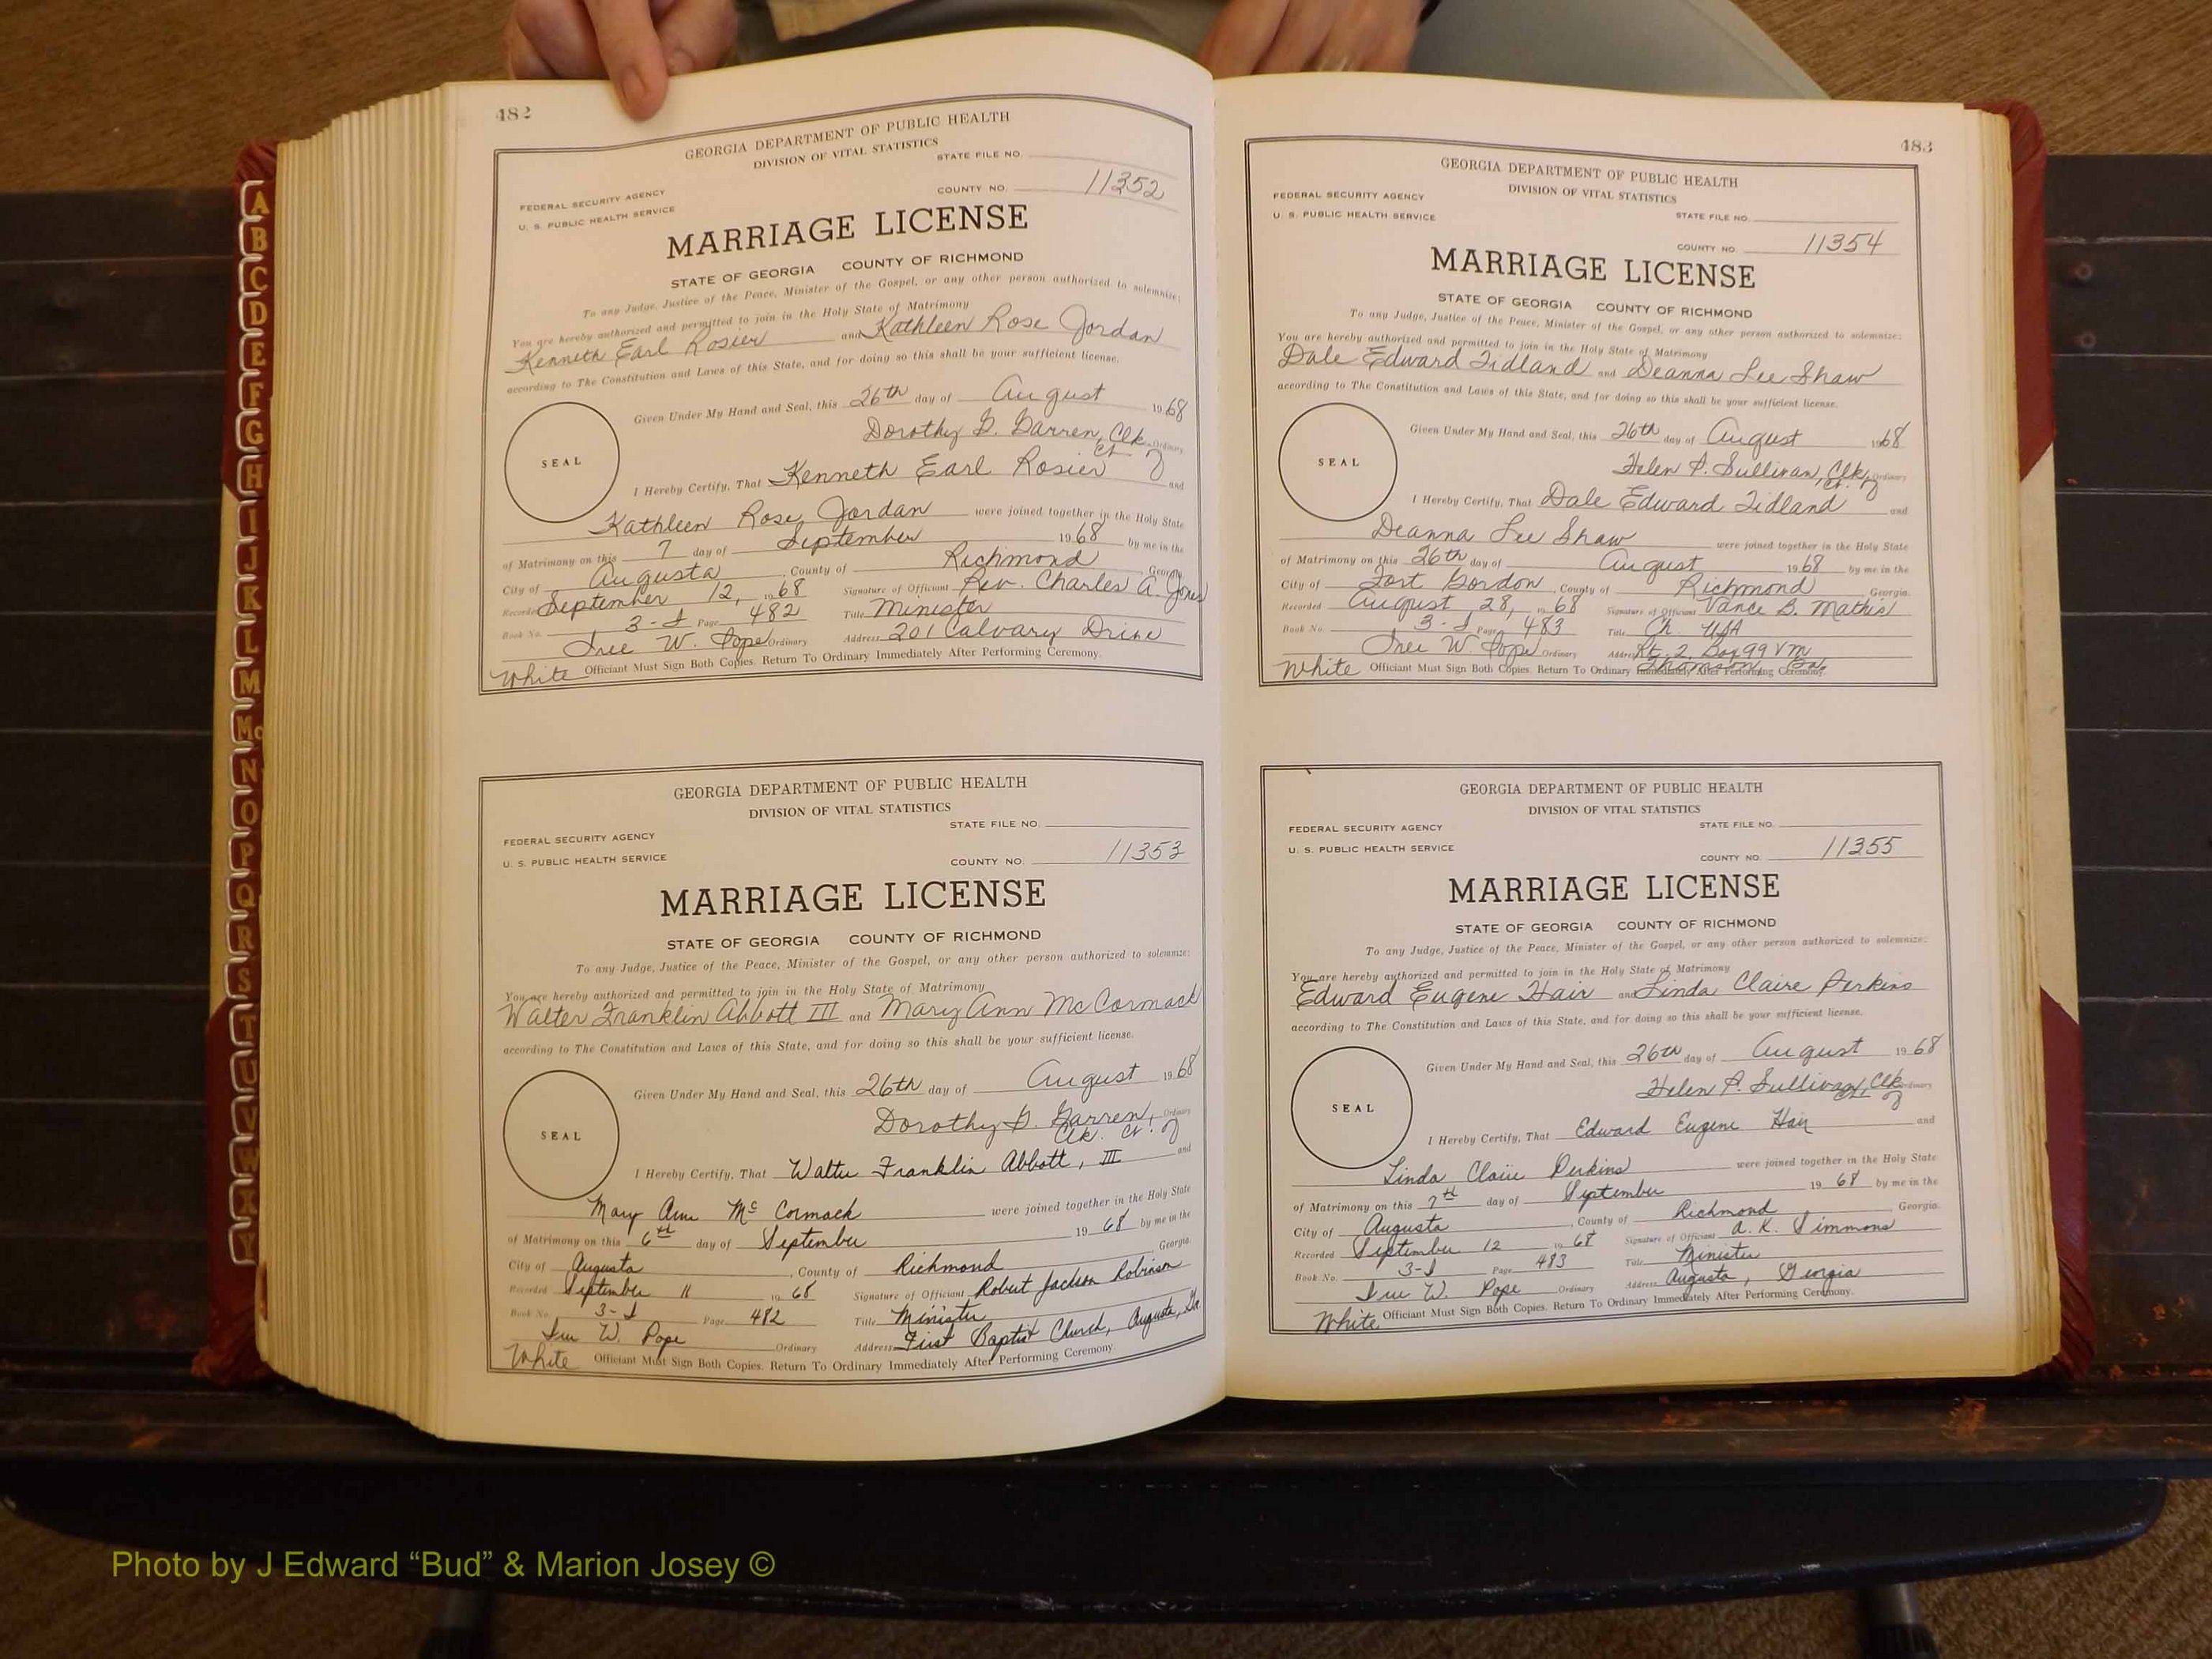 482
GEORGIA DEPARTMENT OF PUBLIC HEALTH
DIVISION OF VITAL STATISTICS
STATE FILE NO.
FEDERAL SECURITY AGENCY
COUNTY NO. 11352
U. S. PUBLIC HEALTH SERVICE
MARRIAGE LICENSE
STATE OF GEORGIA COUNTY OF RICHMOND
To any Judge, Justice of the Peace, Minister of the Gospel, or any other person authorized to solemnize:
You are hereby authorized and permitted to join in the Holy State of Matrimony
Kenneth Earl Rosier and Kathleen Rose Jordan
according to The Constitution and Laws of this State, and for doing so this shall be your sufficient license.
Given Under My Hand and Seal, this 26th day of August 1968
Dorothy G. Garren, Clk. Ordinary
Ct. 
SEAL
I Hereby Certify, That Kenneth Earl Rosier and
Kathleen Rose Jordan were joined together in the Holy State
of Matrimony on this 7 day of September 1968 by me in the
City of Augusta, County of Richmond, Georgia
Recorded September 12, 1968 Signature of Officiant Rev. Charles A. Jones
Book No. 3-I Page 482 Title Minister
W. Pope Ordinary Address 201 Calvary Drive
White Officiant Must Sign Both Copies. Return To Ordinary Immediately After Performing Ceremony.
GEORGIA DEPARTMENT OF PUBLIC HEALTH
DIVISION OF VITAL STATISTICS
STATE FILE NO.
FEDERAL SECURITY AGENCY
U. S. PUBLIC HEALTH SERVICE
COUNTY NO. 11353
MARRIAGE LICENSE
STATE OF GEORGIA COUNTY OF RICHMOND
To any Judge, Justice of the Peace, Minister of the Gospel, or any other person authorized to solemnize:
You are hereby authorized and permitted to join in the Holy State of Matrimony
Walter Franklin Abbott III and Mary Ann McCormack
according to The Constitution and Laws of this State, and for doing so this shall be your sufficient license.
Given Under My Hand and Seal, this 26th day of August 1968
Dorothy G. Garren, Ordinary
Clk. Ct. 
SEAL
I Hereby Certify, That Walter Franklin Abbott, III and
Mary Ann McCormack were joined together in the Holy State
of Matrimony on this 6th day of September 1968 by me in the
City of Augusta, County of Richmond Georgia.
Recorded September 11 1968 Signature of Officiant Robert Jackson Robinson
Book No. 3-I Page 482 Title Minister
W. Pope Ordinary Address First Baptist Church, Augusta, Ga
White Officiant Must Sign Both Copies. Return To Ordinary Immediately After Performing Ceremony.
483
GEORGIA DEPARTMENT OF PUBLIC HEALTH
DIVISION OF VITAL STATISTICS
FEDERAL SECURITY AGENCY
U. S. PUBLIC HEALTH SERVICE
STATE FILE NO.
COUNTY NO. 11354
MARRIAGE LICENSE
STATE OF GEORGIA COUNTY OF RICHMOND
To any Judge, Justice of the Peace, Minister of the Gospel, or any other person authorized to solemnize:
You are hereby authorized and permitted to join in the Holy State of Matrimony
Dale Edward Tidland and Deanna Lee Shaw
according to The Constitution and Laws of this State, and for doing so this shall be your sufficient license.
Given Under My Hand and Seal, this 26th day of August 1968
Helen P. Sullivan, Clk, Ordinary
Ct. 
SEAL
I Hereby Certify, That Dale Edward Tidland and
Deanna Lee Shaw were joined together in the Holy State
of Matrimony on this 26th day of August 1968 by me in the
City of Fort Gordon, County of Richmond Georgia.
Recorded August 28, 1968 Signature of Officiant Vance B. Mathis
Book No. 3-I Page 483 Title Ch. USA
W. Pope Ordinary Address Rt. 2, Box 99 VM
Thomson, Ga.
White Officiant Must Sign Both Copies. Return To Ordinary Immediately After Performing Ceremony.
GEORGIA DEPARTMENT OF PUBLIC HEALTH
DIVISION OF VITAL STATISTICS
FEDERAL SECURITY AGENCY
STATE FILE NO.
U. S. PUBLIC HEALTH SERVICE
COUNTY NO. 11355
MARRIAGE LICENSE
STATE OF GEORGIA COUNTY OF RICHMOND
To any Judge, Justice of the Peace, Minister of the Gospel, or any other person authorized to solemnize:
You are hereby authorized and permitted to join in the Holy State of Matrimony
Edward Eugene Hair and Linda Claire Perkins
according to The Constitution and Laws of this State, and for doing so this shall be your sufficient license.
Given Under My Hand and Seal, this 26th day of August 1968
Helen P. Sullivan, Clk. Ordinary
SEAL
I Hereby Certify, That Edward Eugene Hair and
Linda Claire Perkins were joined together in the Holy State
of Matrimony on this 7th day of September 1968 by me in the
City of Augusta, County of Richmond, Georgia.
Recorded September 12 1968 Signature of Officiant A. K. Simmons
Book No. 3-I Page 483 Title Minister
W. Pope Ordinary Address Augusta, Georgia
White Officiant Must Sign Both Copies. Return To Ordinary Immediately After Performing Ceremony.
A
B
C
D
E
F
G
H
I
J
K
L
M
Mc
N
O
P
Q
R
S
T
U
V
W
X
Y
Photo by J Edward “Bud” & Marion Josey ©